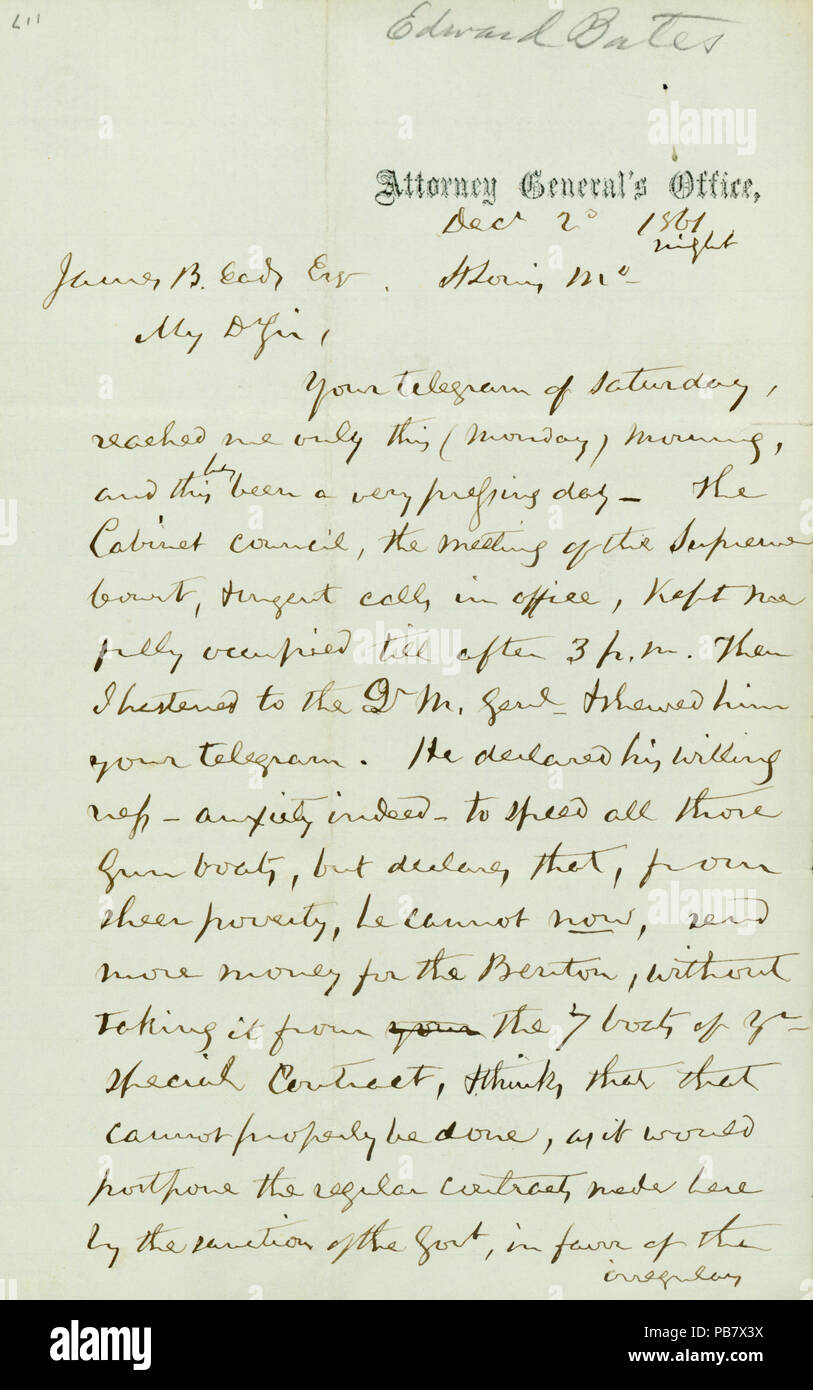 Edward Bates
Attorney General's Office,
Decr 2d 1861
night
James B. Eads Esqr. St Louis Mo-
My Dr Sir,
Your telegram of Saturday,
reached me only this (Monday) morning,
and this has been a very pressing day- The
Cabinet council, the meeting of the Supreme
Court, & urgent calls in office, kept me
fully occupied till after 3 p.m. Then
I hastened to the Qr M. Genl- & shewed him
your telegram. He declared his willing
ness - anxiety indeed - to speed all those
Gun boats, but declares that, from
sheer poverty, he cannot now, send
more money for the Benton, without
taking it from your the 7 boats of yr-
special Contract, & thinks that that
cannot properly be done, as it would
postpone the regular contracts made here
by the sanction of the Govt, in favor of the
irregular
alamy
Image ID: PB7X3X
www.alamy.com